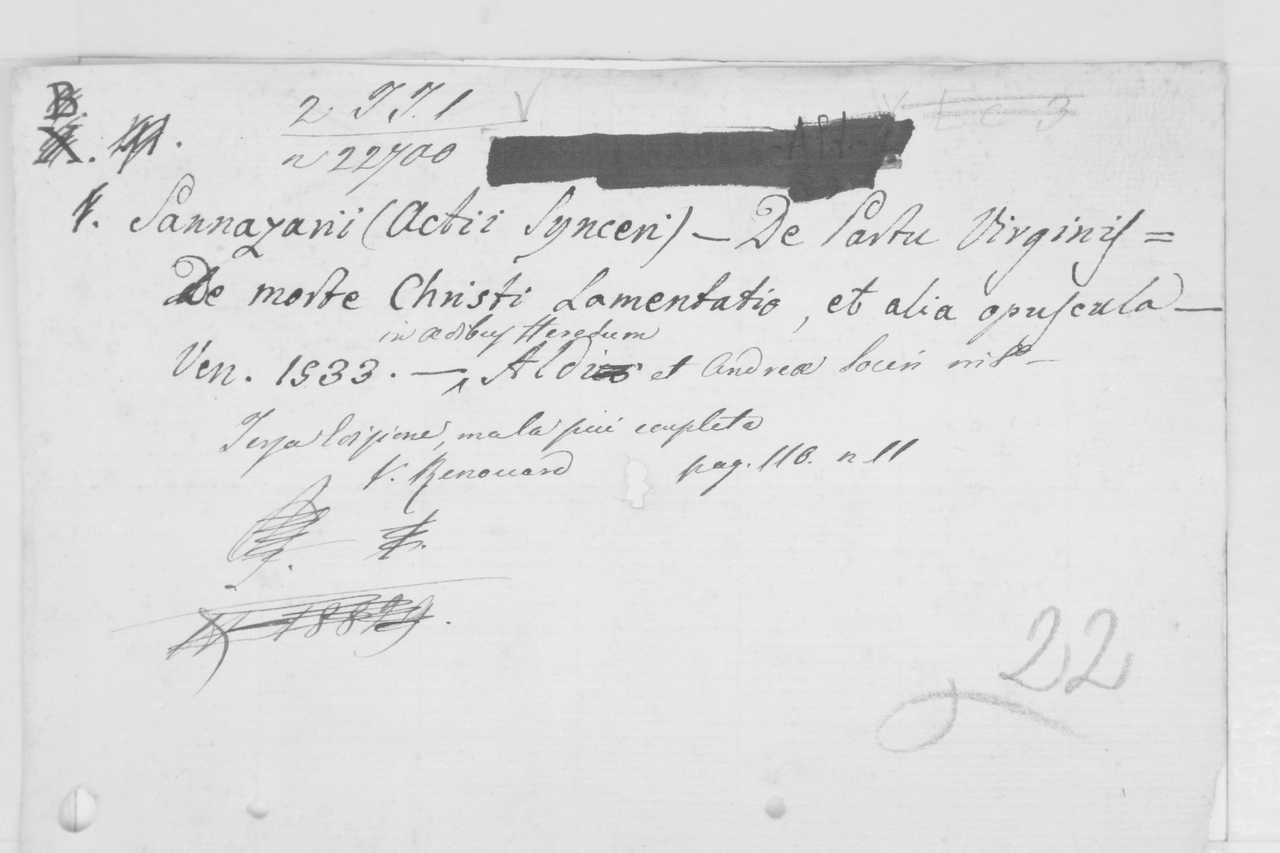 B.
2 JJ. 1
n 22700
L c 3
4. Sannazarii (Actii Synceri) — De Partu Virginis =
De morte Christi Lamentatio, et alia opuscula —
in ædibus Heredum
Ven. 1533. — Aldi et Andreæ Soceri
Terza Edizione, ma la più completa
V. Renouard pag. 116. n 11
22